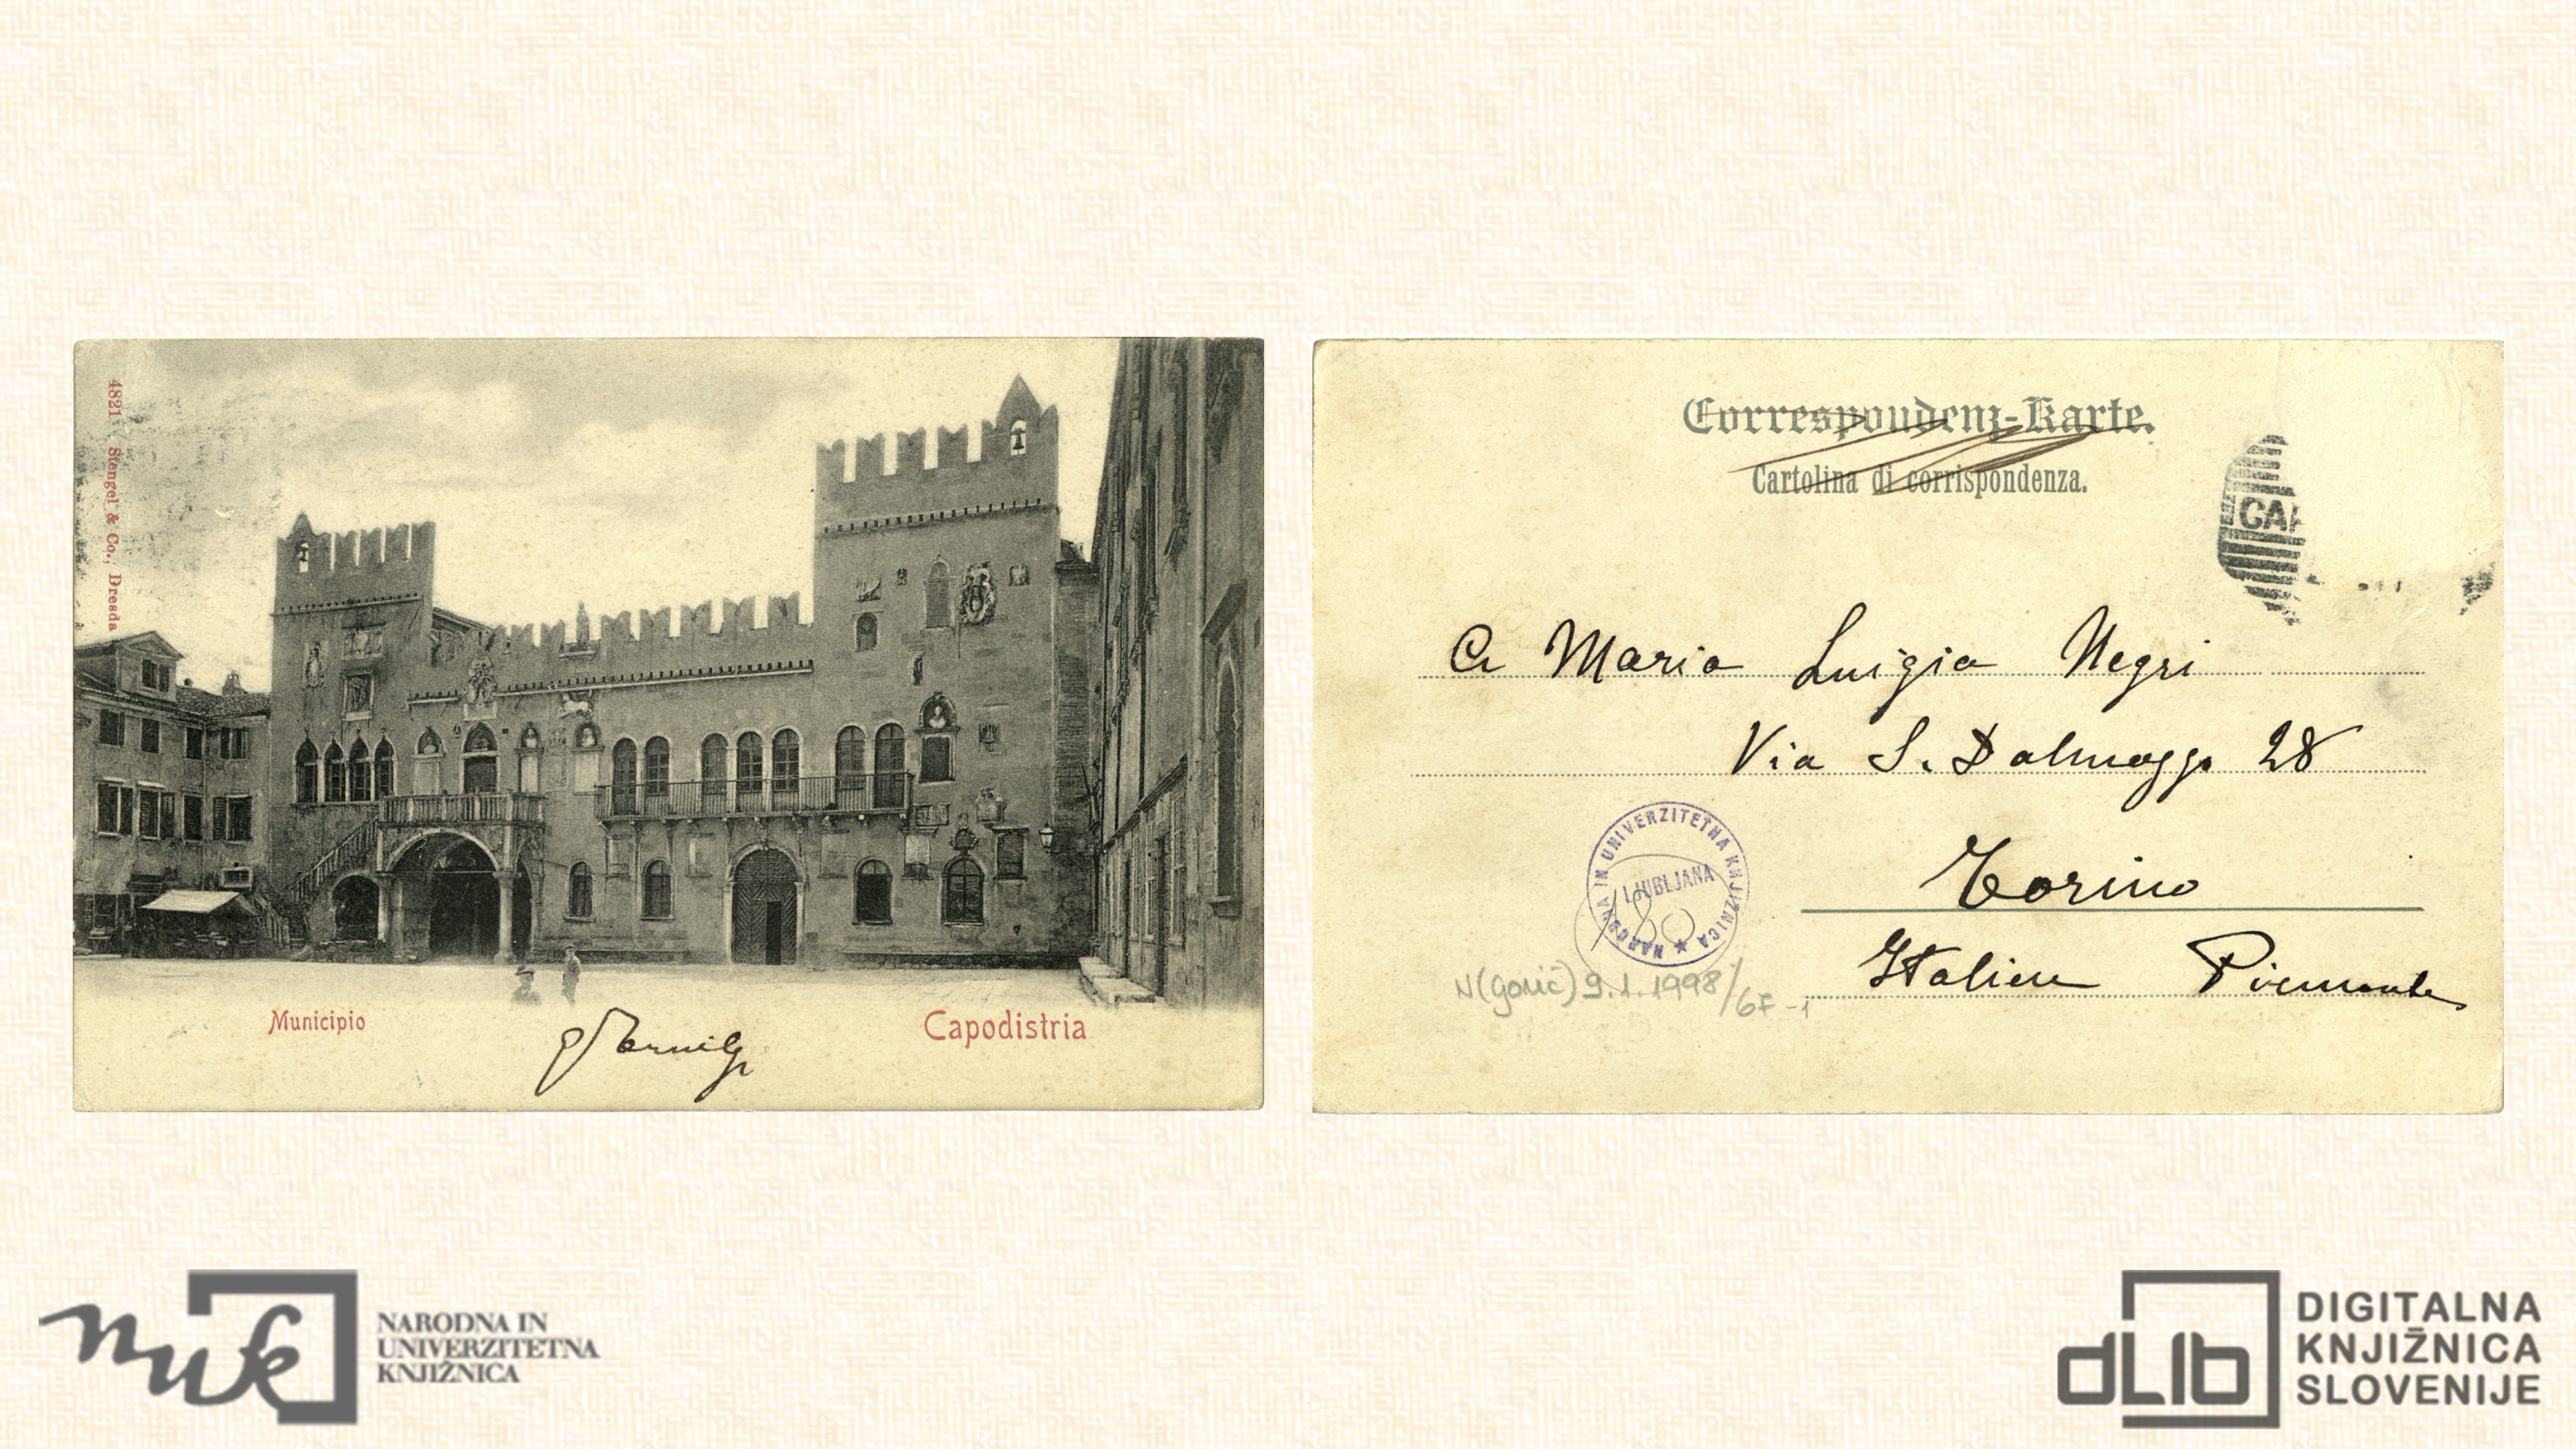 4821 Stengel & Co., Dresda
Municipio
Capodistria
Correspondenz-Karte.
Cartolina di corrispondenza.
CAP
A Maria Luigia Negri
Via S. Dalmazzo 28
Torino
Italien Piemonte
NARODNA IN UNIVERZITETNA KNJIŽNICA ★
LJUBLJANA
N(gorič) 9.1.1998/67-1
nuk
NARODNA IN
UNIVERZITETNA
KNJIŽNICA
dLib
DIGITALNA
KNJIŽNICA
SLOVENIJE